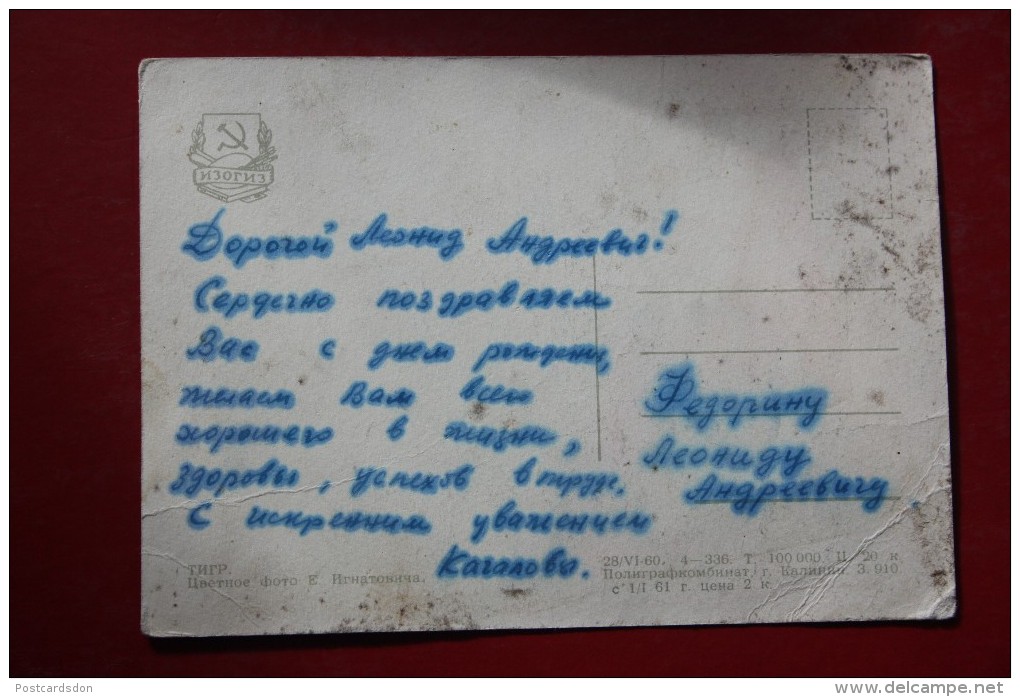 ИЗОГИЗ
Дорогой Леонид Андреевич!
Сердечно поздравляем
Вас с днем рождения,
желаем Вам всего
хорошего в жизни,
здоровья, успехов в труде.
С искренним уважением
Кагаловы.
Федорину
Леониду
Андреевичу
ТИГР.
Цветное фото Е. Игнатовича.
28/VI-60. 4—336. Т. 100 000 Ц. 20 к.
Полиграфкомбинат, г. Калинин. З. 910.
с 1/I 61 г. цена 2 к.
Postcardsdon
www.delcampe.net